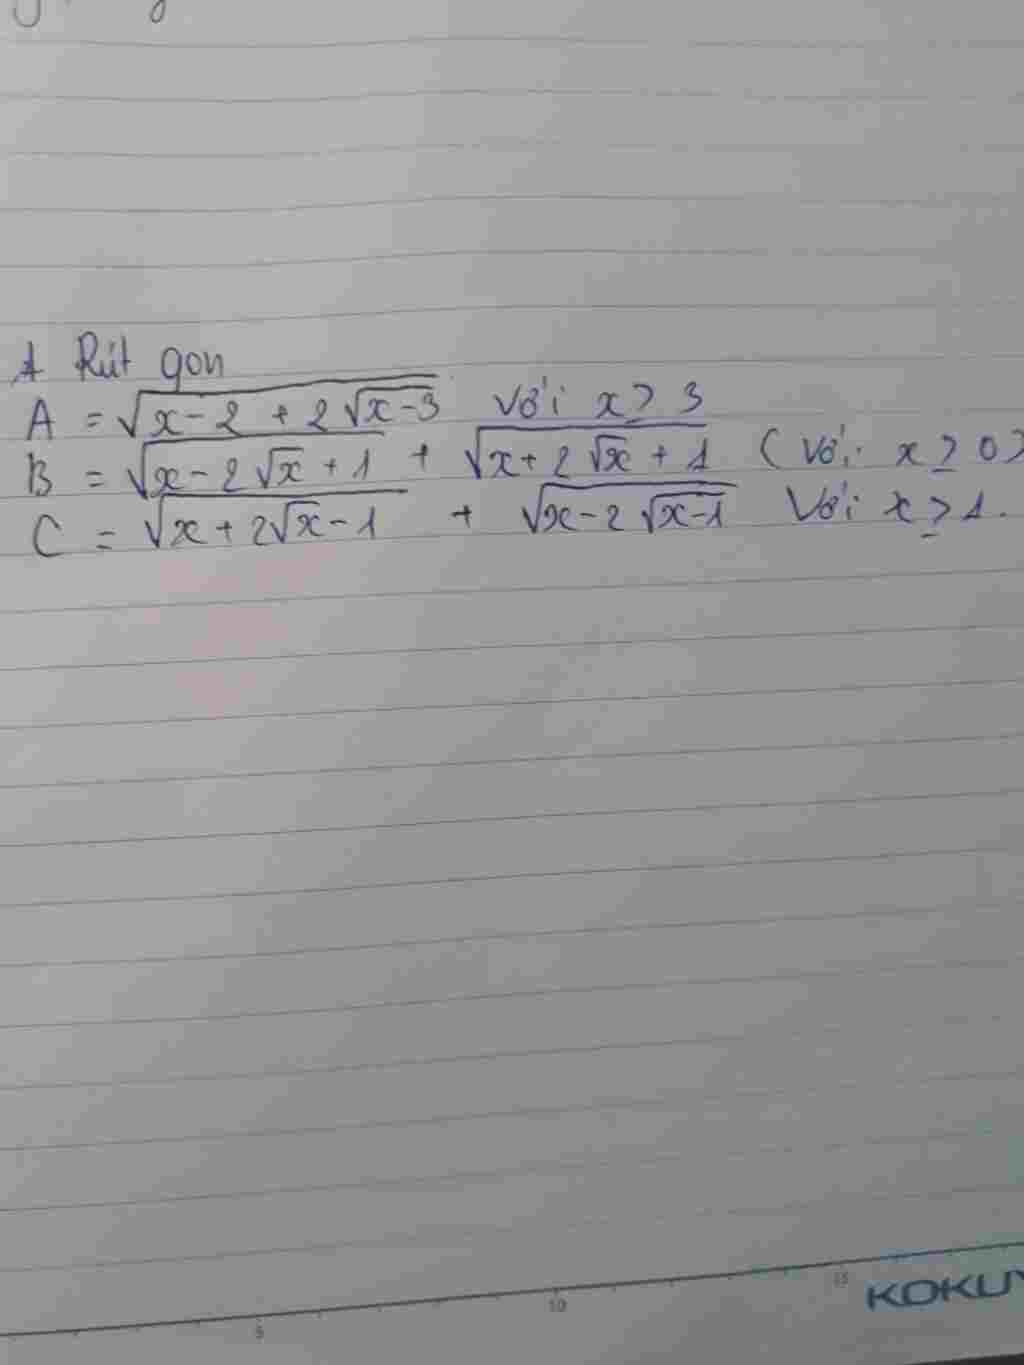 1 Rút gọn
A = √(x-2 + 2√(x-3)) Với x ≥ 3
B = √(x-2√x + 1) + √(x+2√x + 1) (Với x ≥ 0)
C = √(x+2√x-1) + √(x-2√(x-1)) Với x ≥ 1.
5 10 15
KOKUY